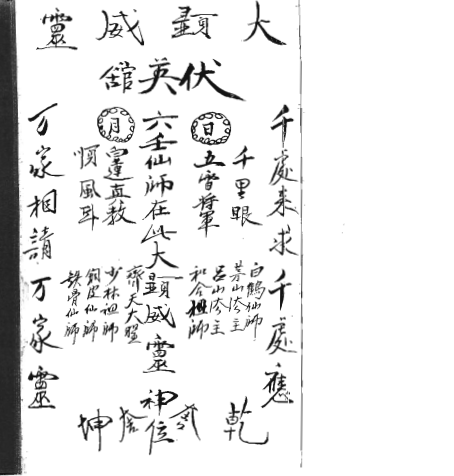 大顯威靈
伏英舘
千處來求千處應
千里眼
日
五雷將軍
白鶴仙師
茅山教主
呂山教主
和合祖師
六壬仙師在此大顯威靈神位
月
順風耳
齊天大聖
少林祖師
銅皮仙師
鉄骨仙師
万家相請万家靈
乾
坤